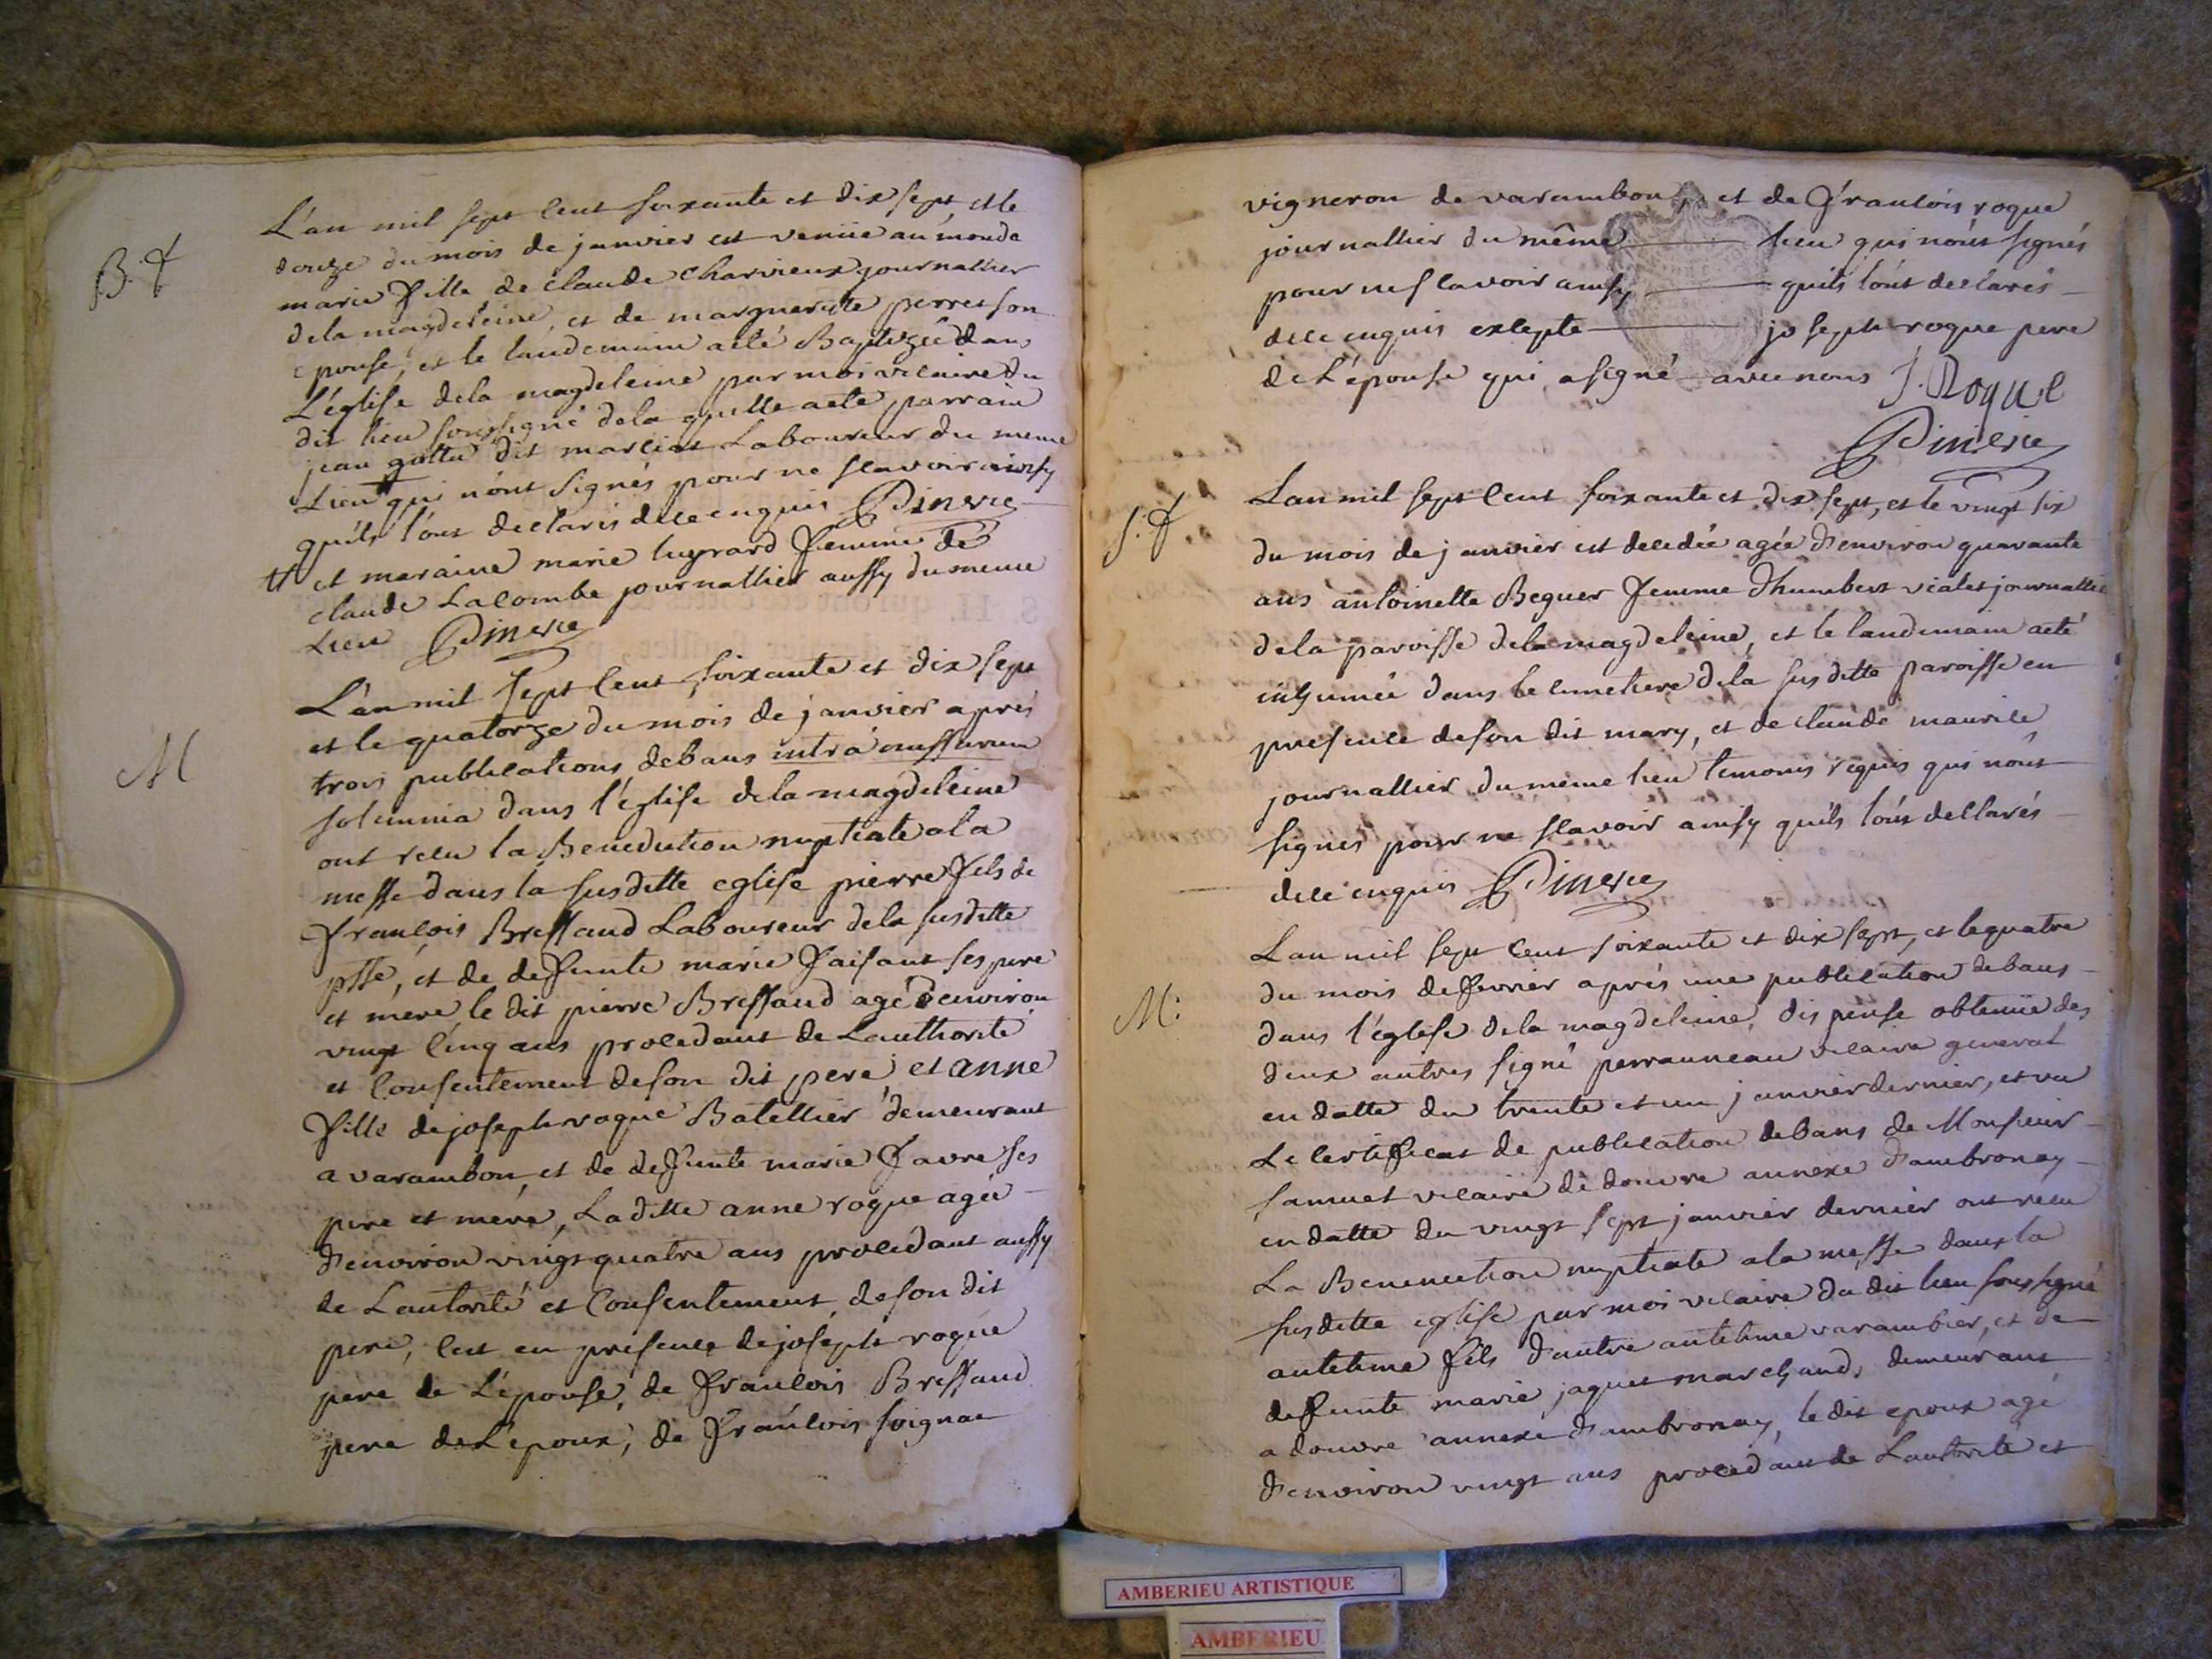 B. f
L'an mil sept cent soixante et dix sept, et le
douze du mois de janvier est venüe au monde
marie fille de claude charvieux journallier
de la magdeleine, et de marguerite perret son
epouse, et le landemain a eté Baptizée dans
L'église de la magdeleine par moi vicaire du
dit lieu soussigné de la quelle a eté parrain
jean dit Laboureur du meme
Lieu qui n'ont signés pour ne scavoir ainsy
qu'ils l'ont declarés de ce enquis Pinerie
et maraine marie lugrard femme de
claude Lacombe journallier aussy du meme
Lieu Pinerie
M
L'an mil sept cent soixante et dix sept
et le quatorze du mois de janvier après
trois publications de bans intra missarum
solemnia dans l'église de la magdeleine
ont recu la Benediction nuptiale a la
messe dans la susditte eglise pierre fils de
francois Bressaud Laboureur de la susditte
psse, et de defunte marie faisant ses pere
et mere le dit pierre Bressaud agé d'environ
vingt cinq ans procedant de Lauthorité
et consentement de son dit pere, et anne
fille de joseph roque Batellier demeurant
a varambon, et de defunte marie favre ses
pere et mere, Laditte anne roque agée
d'environ vingt quatre ans procedant aussy
de Lautorité et consentement de son dit
pere, cest en presence de joseph roque
pere de L'épouse, de francois Bressaud
pere de L'epoux, de francois soignat
vigneron de varambon, et de francois roque
journallier du même lieu qui n'ont signés
pour ne scavoir ainsy qu'ils l'ont declarés
de ce enquis excepte joseph roque pere
de L'épouse qui a signé avec nous J. Roque
Pinerie
S. f
Lan mil sept cent soixante et dix sept, et le vingt six
du mois de janvier est decedée agée d'environ quarante
ans antoinette Beguer femme d'humbert vialet journallier
de la paroisse de la magdeleine, et le landemain a eté
inhumée dans le cimetiere de la susditte paroisse en
presence de son dit mary, et de claude maurice
journallier du même lieu temoins requis qui n'ont
signés pour ne scavoir ainsy qu'ils l'ont declarés
de ce enquis Pinerie
M.
Lan mil sept cent soixante et dix sept, et le quatre
du mois de fevrier après une publication de bans
dans l'église de la magdeleine, dispense obtenüe des
deux autres signé perrauneau vicaire general
en datte du trente et un janvier dernier, et vu
Le certificat de publication de bans de Monsieur
samuel vicaire de douvre annexe d'ambronay
en datte du vingt sept janvier dernier ont recu
La Benenection nuptiale a la messe dans la
susditte eglise par moi vicaire du dit lieu soussigné
antelme fils d'autre antelme varambier, et de
defunte marie jaquet marchand, demeurant
a douvre annexe d'ambronay, le dit epoux agé
d'environ vingt ans procedant de Lautorité et
AMBERIEU ARTISTIQUE
AMBERIEU